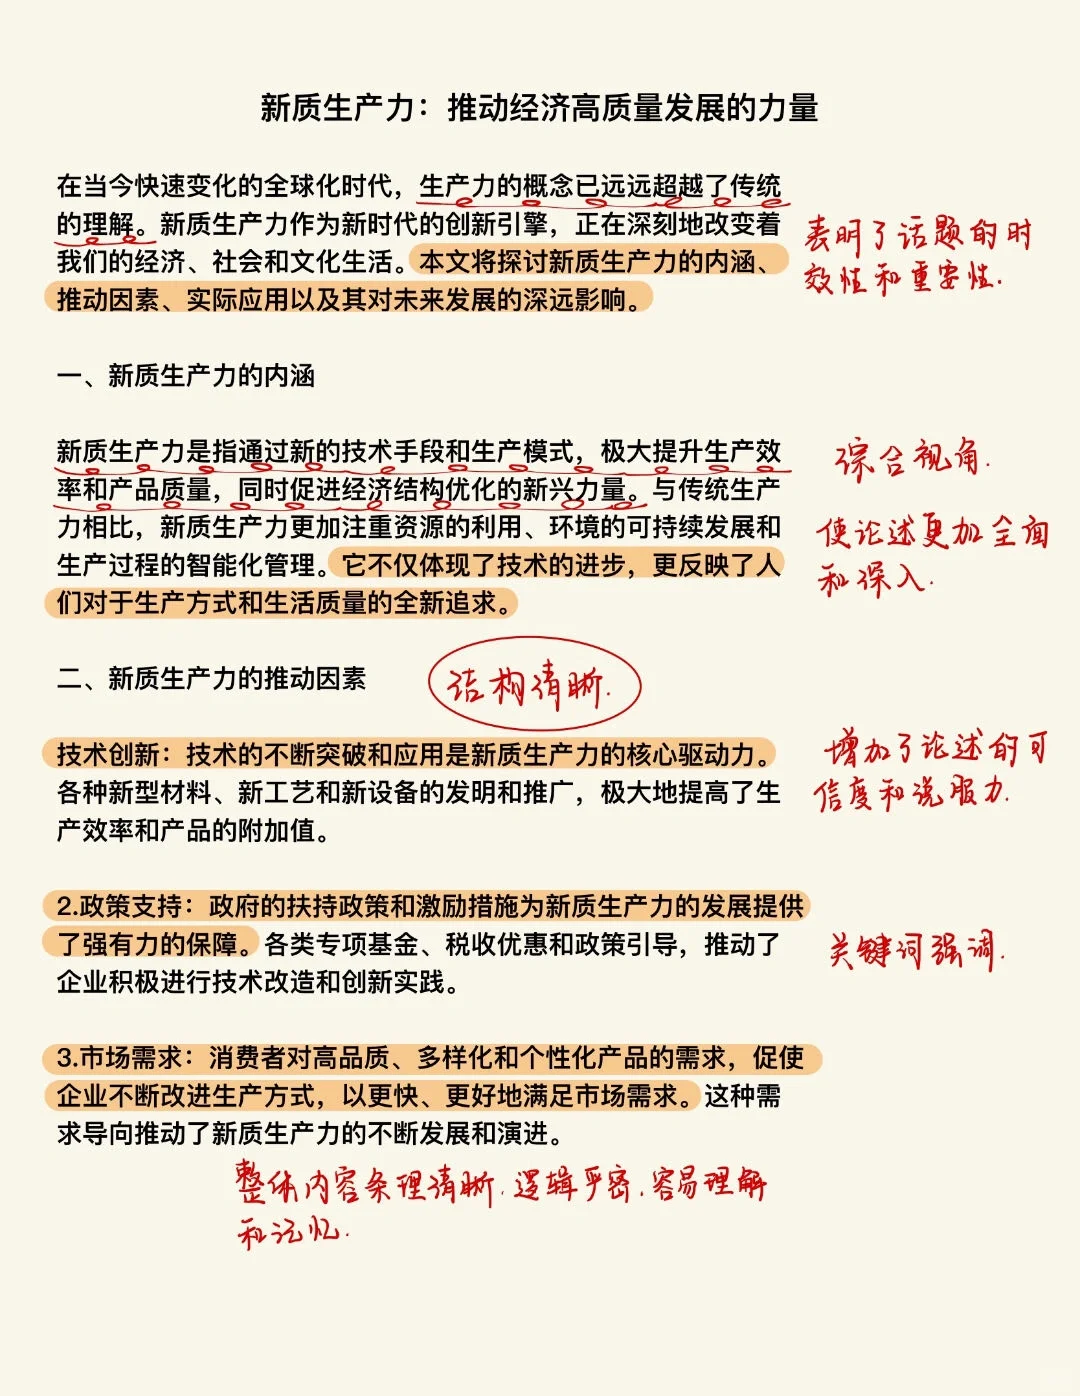 新质生产力：推动经济高质量发展的力量
在当今快速变化的全球化时代，生产力的概念已远远超越了传统
的理解。新质生产力作为新时代的创新引擎，正在深刻地改变着
我们的经济、社会和文化生活。本文将探讨新质生产力的内涵、
推动因素、实际应用以及其对未来发展的深远影响。
表明了话题的时
效性和重要性.
一、新质生产力的内涵
新质生产力是指通过新的技术手段和生产模式，极大提升生产效
率和产品质量，同时促进经济结构优化的新兴力量。与传统生产
力相比，新质生产力更加注重资源的利用、环境的可持续发展和
生产过程的智能化管理。它不仅体现了技术的进步，更反映了人
们对于生产方式和生活质量的全新追求。
综合视角.
使论述更加全面
和深入.
二、新质生产力的推动因素
结构清晰.
技术创新：技术的不断突破和应用是新质生产力的核心驱动力。
各种新型材料、新工艺和新设备的发明和推广，极大地提高了生
产效率和产品的附加值。
增加了论述的可
信度和说服力.
2.政策支持：政府的扶持政策和激励措施为新质生产力的发展提供
了强有力的保障。各类专项基金、税收优惠和政策引导，推动了
企业积极进行技术改造和创新实践。
关键词强调.
3.市场需求：消费者对高品质、多样化和个性化产品的需求，促使
企业不断改进生产方式，以更快、更好地满足市场需求。这种需
求导向推动了新质生产力的不断发展和演进。
整体内容条理清晰.逻辑严密.容易理解
和记忆.